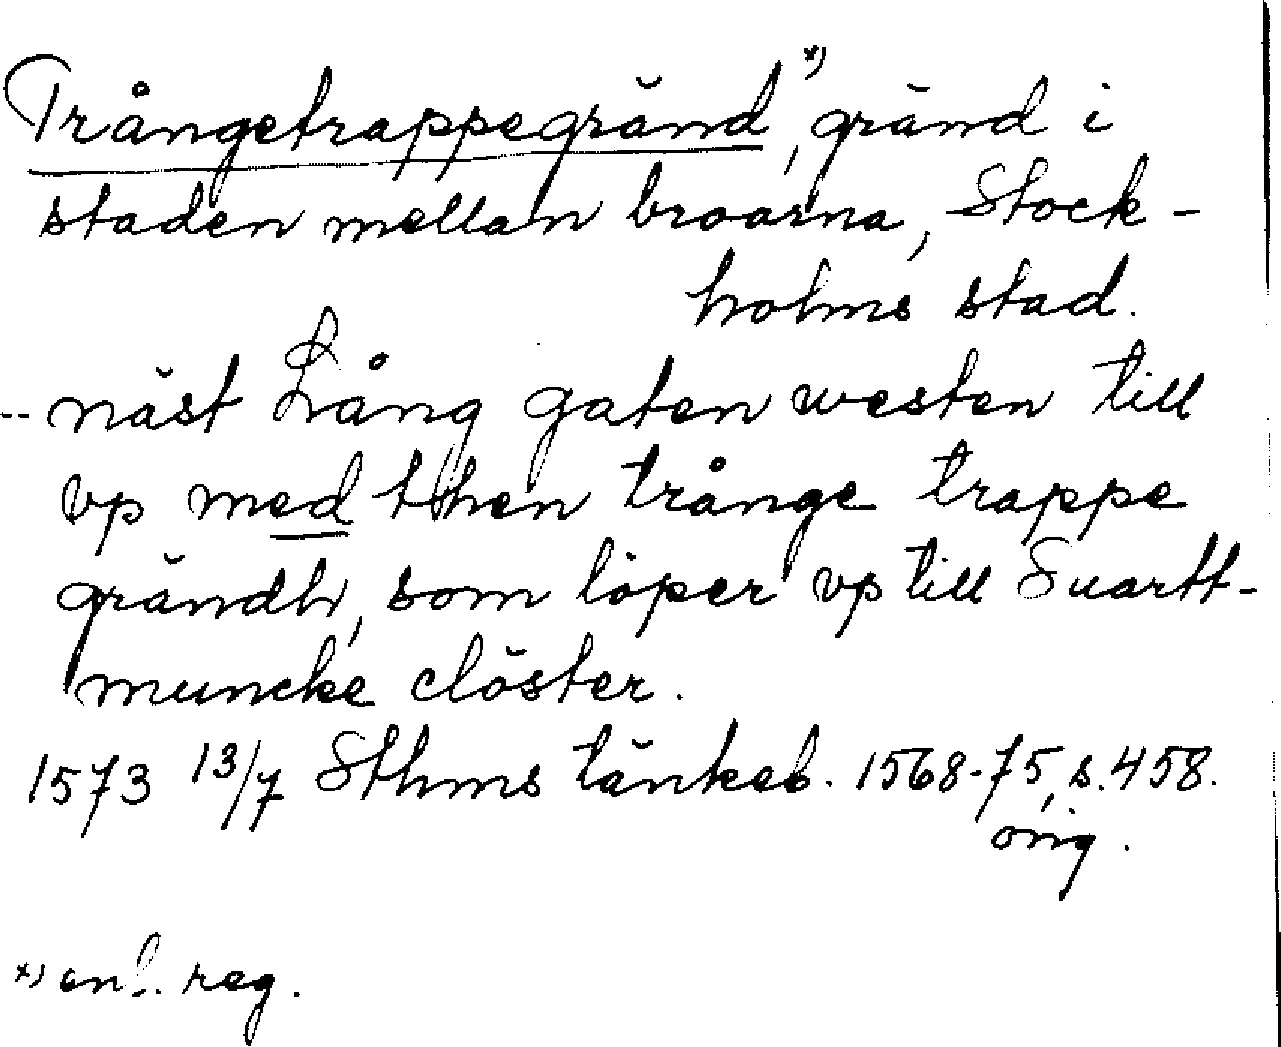 Trångetrappegränd*), gränd i
staden mellan broarna, Stock-
holms stad.
-- näst Lång gaten westen till
vp med then trånge trappe
grändh, som löper vp till Suartt-
muncke clöster.
1573 13/7 Sthms tänkeb. 1568-75, s. 458.
orig.
*) enl. reg.